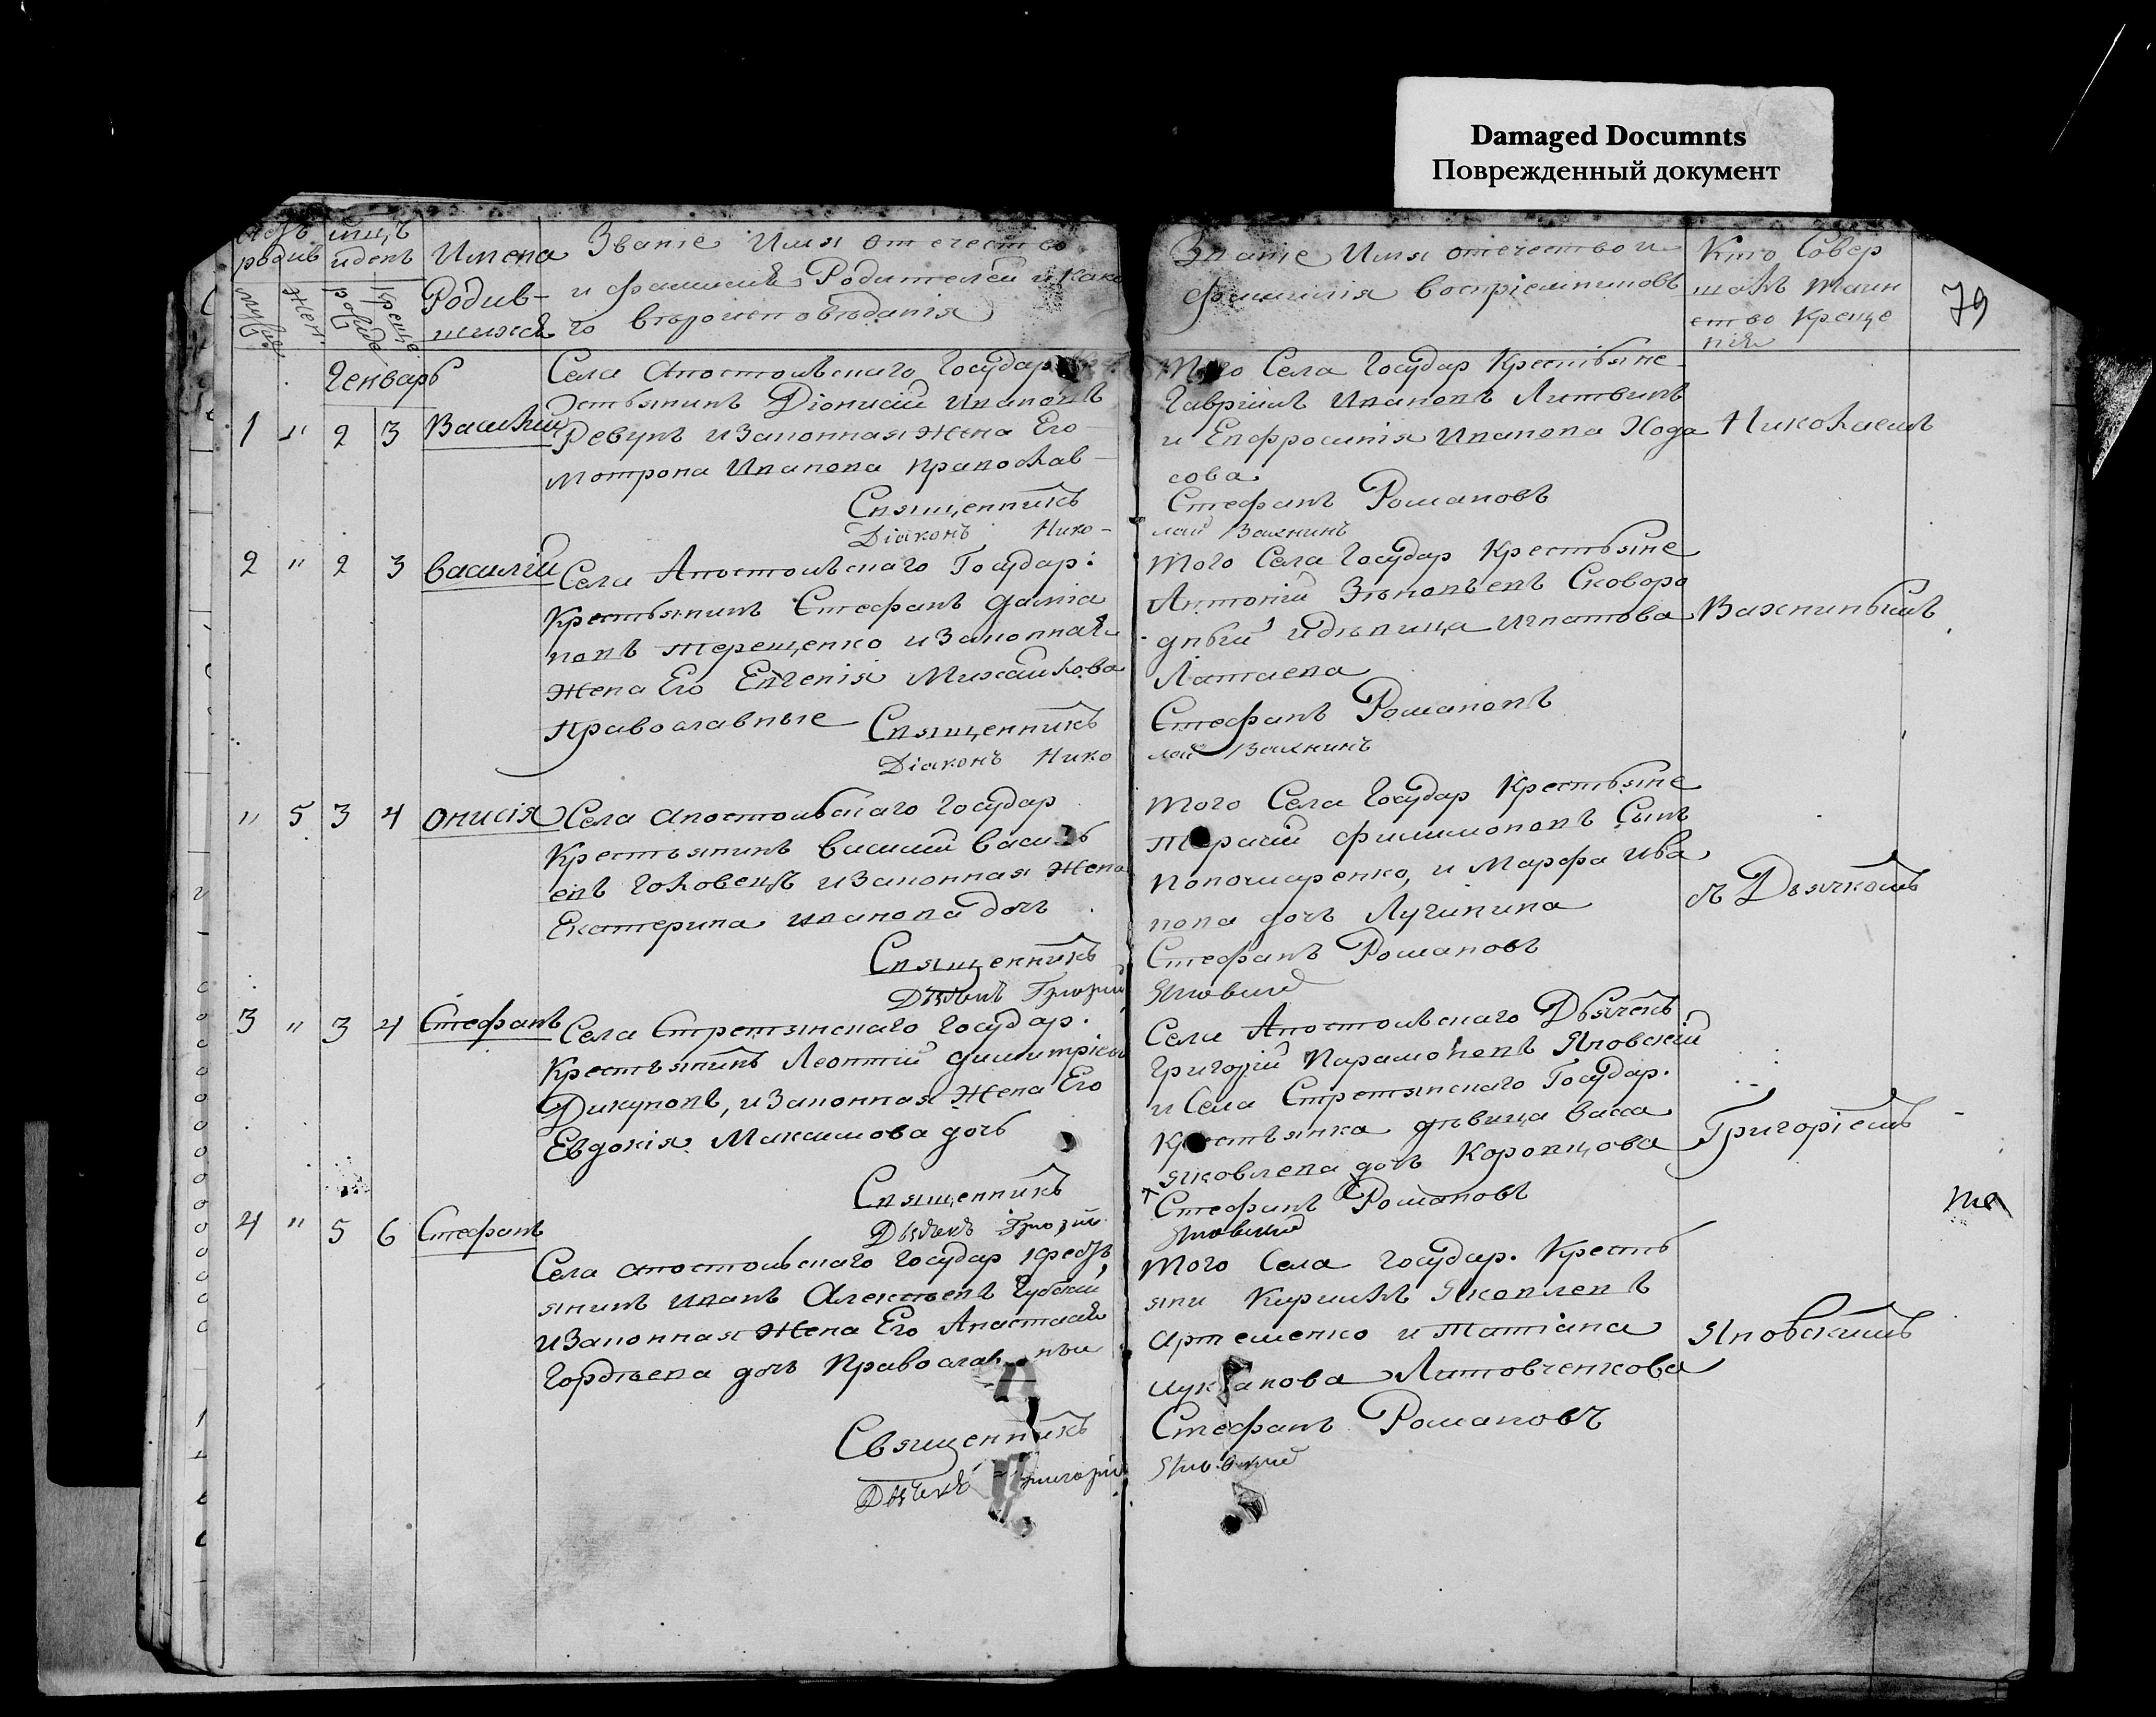 Damaged Documnts
Поврежденный документ
79
родив
иденъ
муж
жен.
рожде
креще
Имена
Родив-
шихся
Званіе Имя отечество
и фамилія Родителей и како
го вѣроисповѣданія
Званіе Имя отечество и
фамилія воспріемниковъ
Кто Совер
шалъ таин
ство Креще
нія
Генварь
1 " 2 3 Василій
Села Апостольскаго Государ
Крестьянинъ Діонисій Ивановъ
Ревунъ и Законная Жена Его
Мотрона Иванова Православ-
Священникъ
Діаконъ Нико-
того Села Государ Крестьяне
Гавріилъ Ивановъ Литвинъ
и Епфросинія Иванова Хода
сова
Стефанъ Романовъ
лай Вахнинъ
Николаемъ
2 " 2 3 Василій
Села Апостольскаго Государ:
Крестьянинъ Стефанъ Даміа
новъ Терещенко и Законная
Жена Его Евгенія Михайлова
Православные Священникъ
Діаконъ Нико
того Села Государ Крестьяне
Антоній Зѣновьевъ Сковоро
дный и дѣвица Игнатова
Латаева
Стефанъ Романовъ
лай Вахнинъ
Вахнинымъ
" 5 3 4 Онисія
Села Апостольскаго Государ
Крестьянинъ Василій Василь
евъ Головецъ и Законная Жена
Екатерина Иванова дочь
Священникъ
Дьячекъ Григорій
того Села Государ Крестьяне
Терентій Филимоновъ Сынъ
Пономаренко, и Марфа Ива
нова дочь Лугинина
Стефанъ Романовъ
Яновскій
съ Дьячкомъ
3 " 3 4 Стефанъ
Села Стретянскаго Государ.
Крестьянинъ Леонтій Димитріев
Дикуновъ, и Законная Жена Его
Евдокія Максимова дочь
Священникъ
Дьячекъ Григорій
Села Апостольскаго Дьячекъ
Григорій Парамоновъ Яновскій
и Села Стретянскаго Государ.
Крестьянка дѣвица Васса
Яковлева дочь Коропцова
Стефанъ Романовъ
Яновскій
Григоріемъ
4 " 5 6 Стефанъ
Села Апостольскаго Государ Кресть
янинъ Иванъ Алексѣевъ Губскій
и Законная Жена Его Анастасія
Гордѣева дочь Православныи
Священникъ
Дьячекъ Григорій
того Села Государ. Кресть
яни Кириллъ Яковлевъ
Артеменко и Татіана
Лукіанова Литовченкова
Стефанъ Романовъ
Яновскій
Яновскимъ